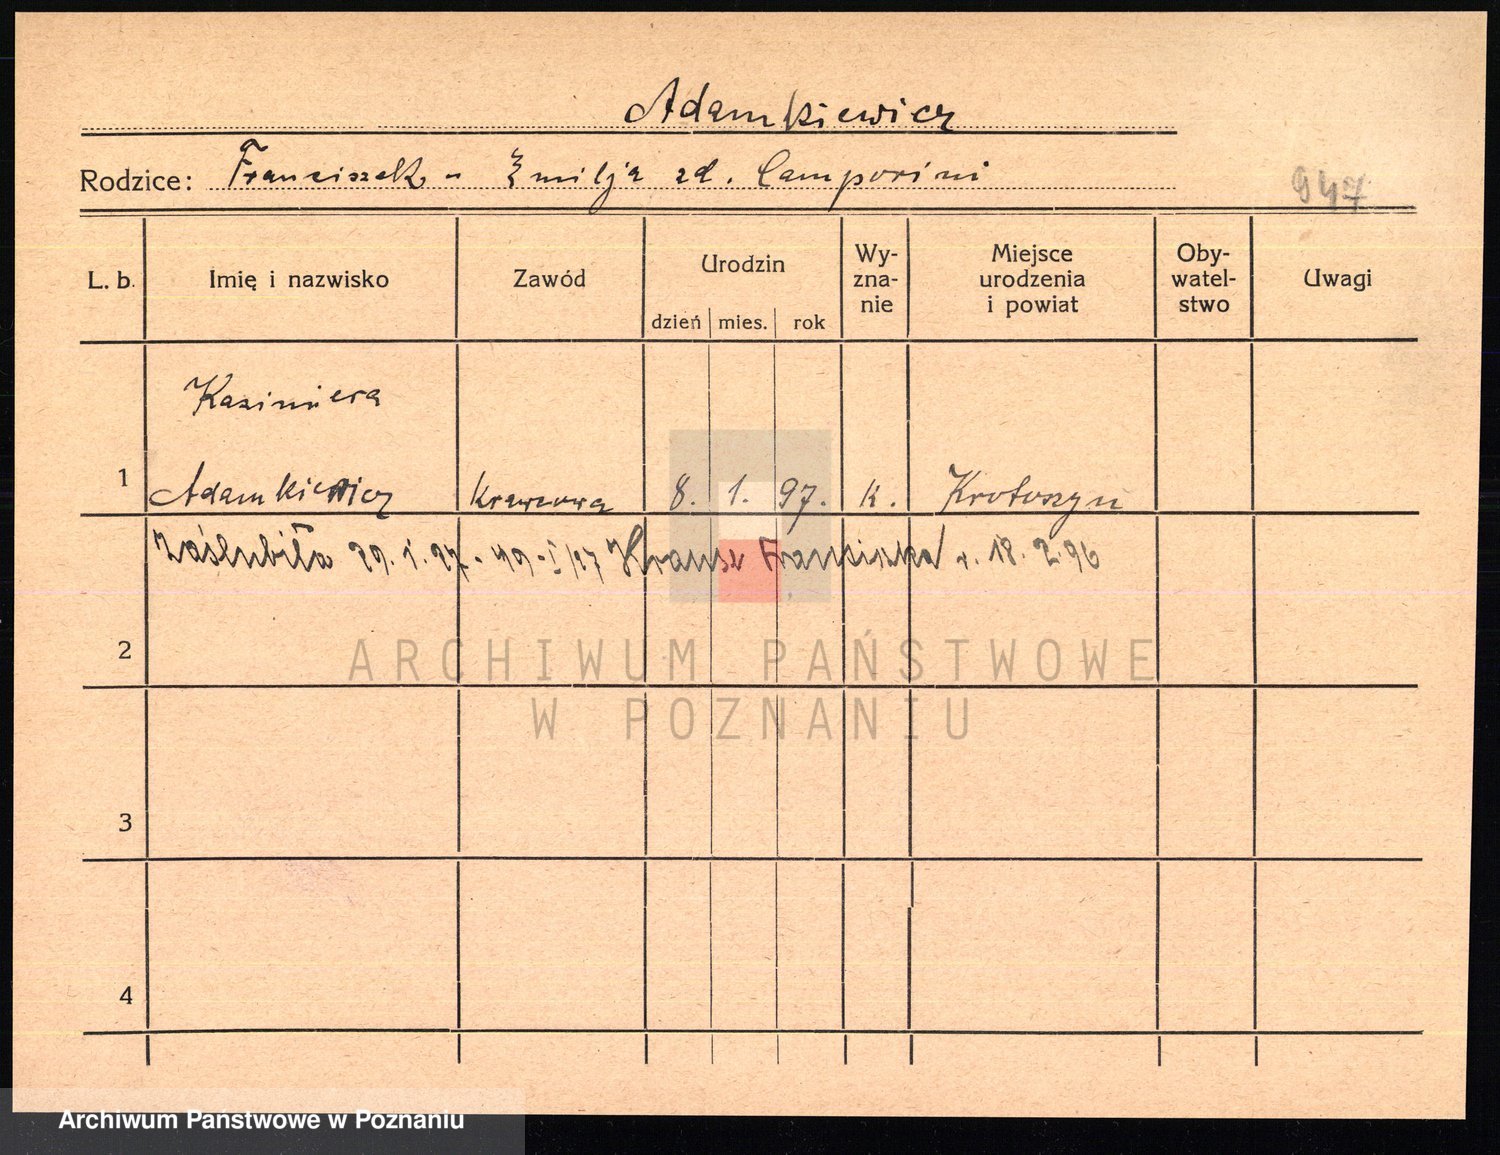 Adamkiewicz
Rodzice: Franciszek - Emilja zd. Camporini
947
L. b.
Imię i nazwisko
Zawód
Urodzin
dzień mies. rok
Wy-
zna-
nie
Miejsce
urodzenia
i powiat
Oby-
watel-
stwo
Uwagi
Kazimiera
1 Adamkiewicz Krawcowa 8. 1. 97. k. Krotoszyn
Zaślubiła 29. 1. 27 - 49-I/27 Krause Franciszka r. 18. 2. 96
2
ARCHIWUM PAŃSTWOWE
W POZNANIU
3
4
Archiwum Państwowe w Poznaniu